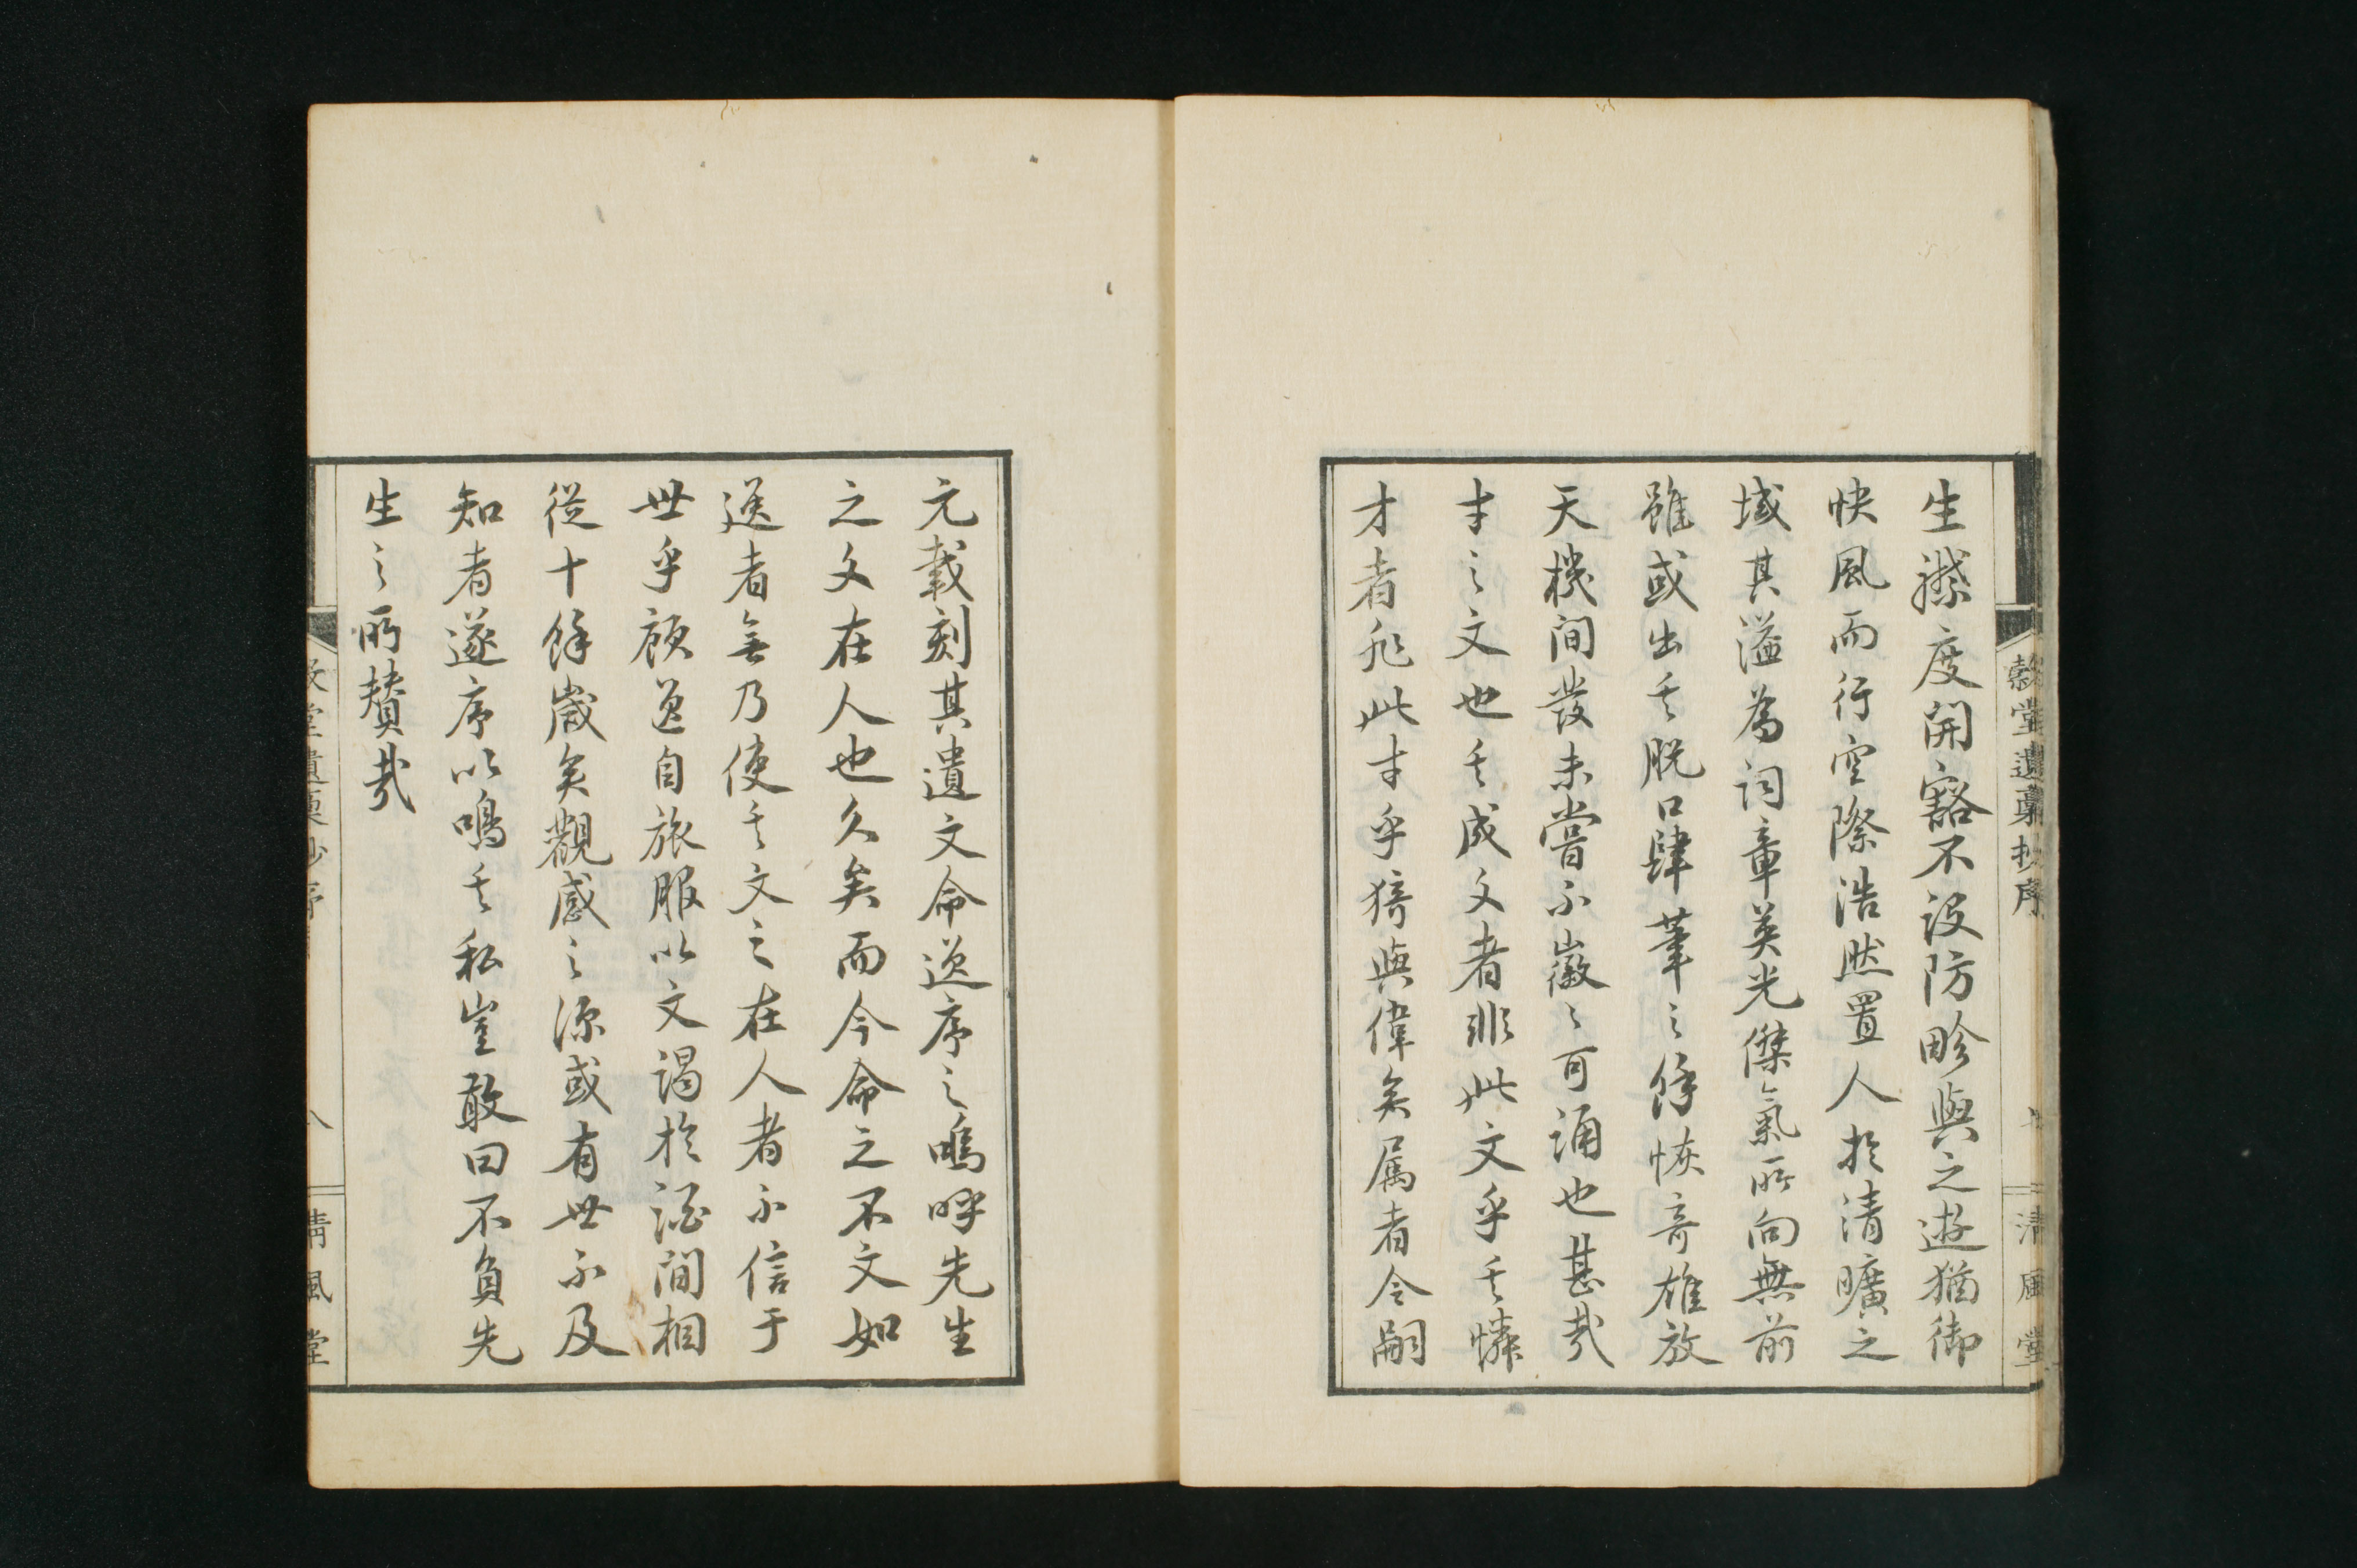 穀堂遺稾抄序
七
清風堂
生襟度開豁不設防畛與之遊猶御
快風而行空際浩然置人於清曠之
域其溢為詞章英光傑氣所向無前
雖或出其脫口肆筆之餘恢奇雄放
天機間發未嘗不徽〻可誦也甚哉
才之文也其成文者非此文乎其憐
才者非此才乎猗與偉矣属者令嗣
元載刻其遺文命逸序之嗚呼先生
之文在人也久矣而今命之不文如
逸者無乃使其文之在人者不信于
世乎顧逸自旅服以文謁於酒間相
從十餘歲矣觀感之深或有世不及
知者遂序以鳴其私豈敢曰不負先
生之所贊哉
穀堂遺稾抄序
八
清風堂